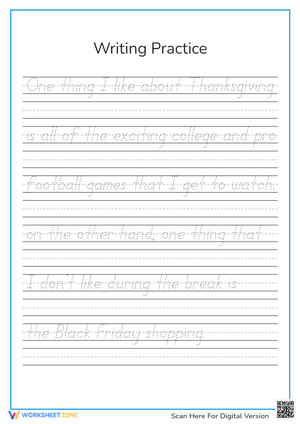 Writing Practice
One thing I like about Thanksgiving
is all of the exciting college and pro
football games that I get to watch.
on the other hand, one thing that
I don't like during the break is
the Black Friday shopping.
WORKSHEETZONE
Scan Here For Digital Version